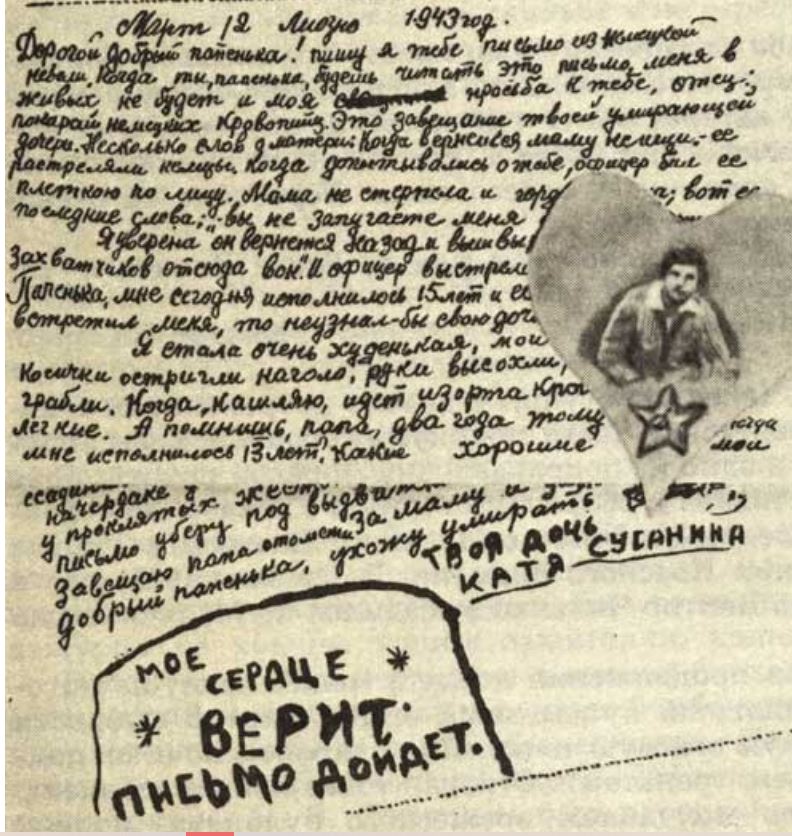 Март 12 Лиозно 1943 год.
Дорогой добрый папенька! пишу я тебе письмо из немецкой
неволи. Когда ты, папенька, будешь читать это письмо, меня в
живых не будет и моя просьба к тебе, отец;
покарай немецких кровопийц. Это завещание твоей умирающей
дочери. Несколько слов о матери. Когда вернешься маму не ищи. ее
растреляли немцы. Когда допытывались о тебе, офицер бил ее
плеткою по лицу. Мама не стерпела и вот ее
последние слова; "вы не запугаете меня
Я уверена он вернется назад и
захватчиков отсюда вон". И офицер
Папенька, мне сегодня исполнилось 15 лет и
встретил меня, то неузнал-бы свою
Я стала очень худенькая, мои
Косички остригли наголо, руки высохли,
грабли. Когда, кашляю, идет изорта
легкие. А помнишь, папа, два года тому
мне исполнилось 13 лет? Какие хорошие мои
начердаке у
у проклятых
письмо уберу под
Завещаю папа отомсти за маму и
добрый папенька, ухожу умирать
ТВОЯ ДОЧЬ
КАТЯ СУСАНИНА
МОЕ
СЕРДЦЕ
ВЕРИТ.
ПИСЬМО ДОЙДЕТ.